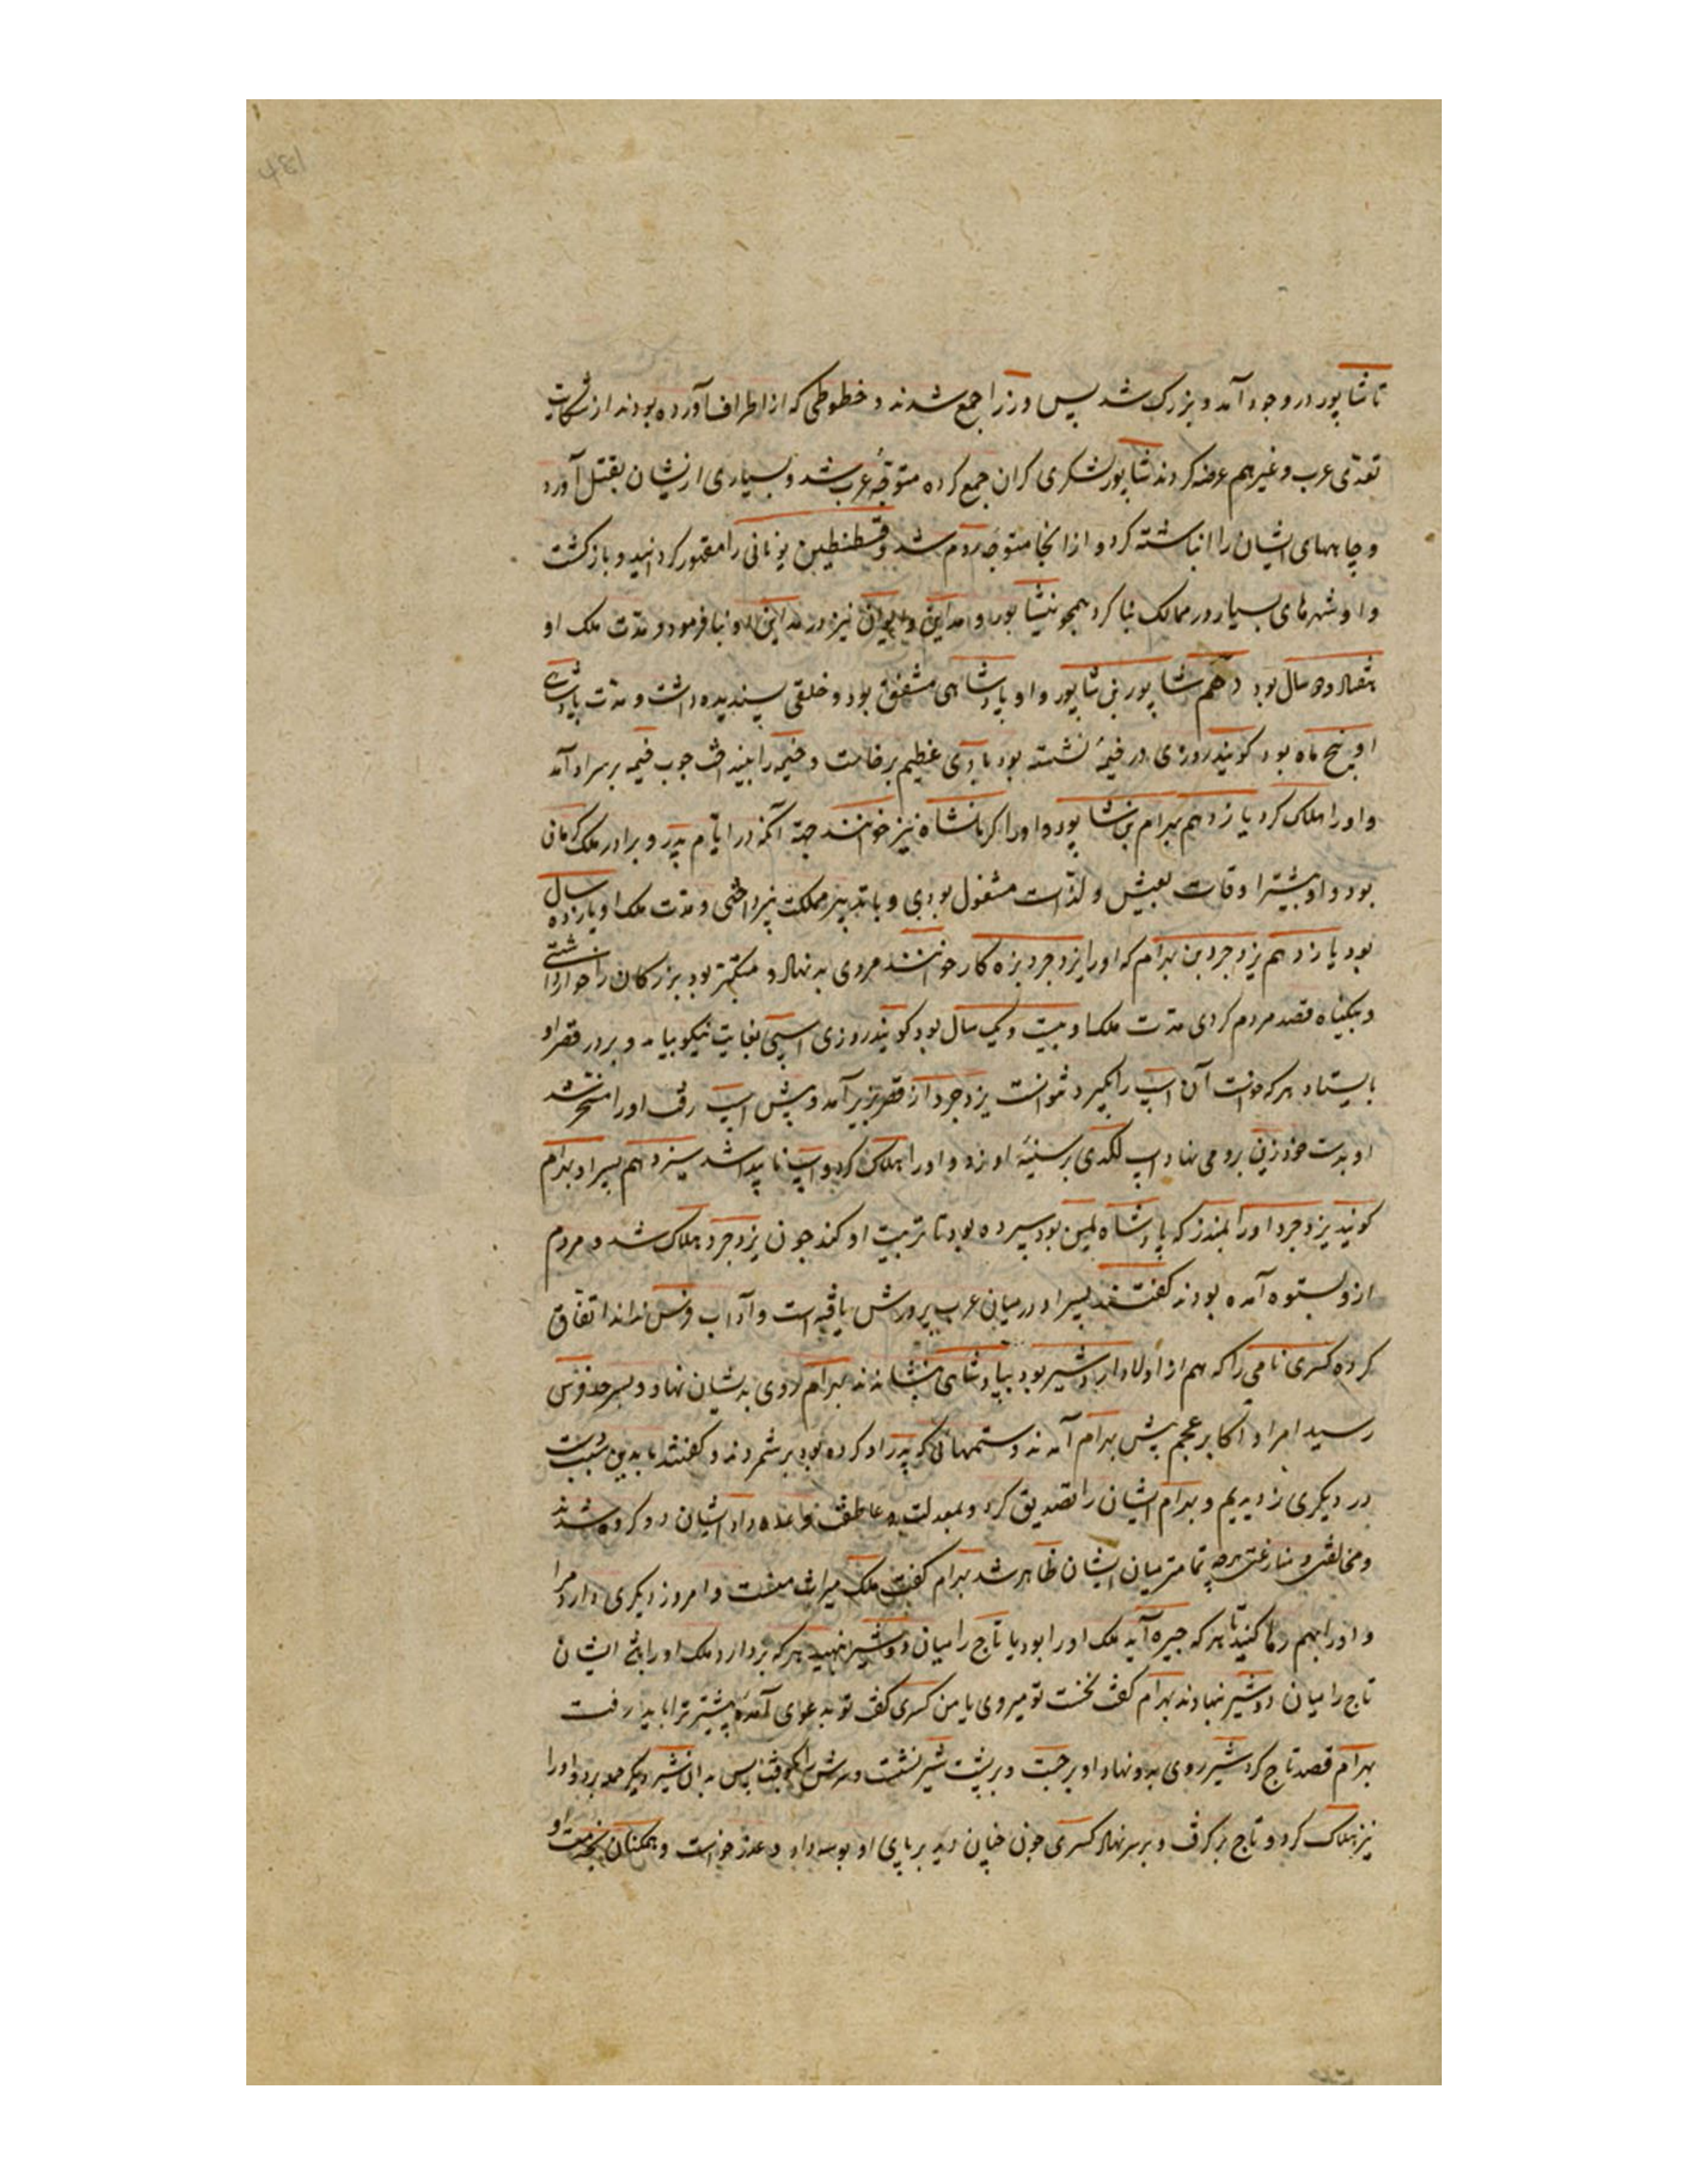 تا شاپور در وجود آمد و بزرک شد پس وزرا جمع شدند و خطوطی که از اطراف آورده بودند از شکایت
تعدّی عرب و غیرهم عرضه کردند شاپور لشکری کران جمع کرده متوجّه عرب شد و بسیاری ازیشان بقتل آورد
و چاههای ایشان را انباشته کرد و از انجا متوجّه روم شد و قسطنطین یونانی را مقهور کردانید و بازکشت
و او شهرهای بسیار در ممالک بنا کرد همچو نیشابور و مداین و ایوان نیز در مداین او بنا فرمود و مدّت ملک او
هفتاد و دو سال بود دهم شاپور بن شاپور و او پادشاهی مشفق بود و خلقی پسندیده داشت و مدّت پادشاهی
او پنج ماه بود کویند روزی در خیمهٔ نشسته بود بادی عظیم برخاست و خیمه را بینداخت چوب خیمه بر سر او آمد
و او را هلاک کرد یازدهم بهرام بن شاپور و او را کرمانشاه نیز خوانند جهة آنکه در ایّام پدر و برادر ملک کرمان
بود و او بیشتر اوقات بعیش و لذّات مشغول بودی و با تدبیر مملکت نپرداختی و مدّت ملک او یازده سال
بود یازدهم یزدجرد بن بهرام که او را یزدجرد بزه کار خوانند مردی بد نهاد و متکبّر بود بزرکان را خوار داشتی
و بیکناه قصد مردم کردی مدّت ملک او بیست و یک سال بود کویند روزی اسپی بغایت نیکو بیامد و بر در قصر او
بایستاد هر که خواست آن اسپ را بکیرد نتوانست یزدجرد از قصر بزیر آمد و پیش اسپ رفت او را مسخّر شد
او بدست خود زین برو می نهاد اسپ لکدی بر سینهٔ او زد و او را هلاک کرد و اسپ ناپیدا شد سیزدهم پسر او بهرام
کویند یزدجرد او را بمنذر که پادشاه یمن بود سپرده بود تا تربیت او کند چون یزدجرد هلاک شد و مردم
ازو بستوه آمده بودند کفتند پسر او در میان عرب پرورش یافته است و آداب فرس نداند اتفاق
کرده کسری نامی را که هم از اولاد اردشیر بود بپادشاهی بنشاندند بهرام روی بدیشان نهاد و بسرحد فرس
رسید امرا و اکابر عجم پیش بهرام آمدند و ستمهائی که پدر او کرده بود برشمردند و کفتند ما بدین سبب دست
در دیکری زدیم و بهرام ایشان را تصدیق کرد و بمعدلت و عاطفت وعده داد ایشان دو کروه شدند
و مخالفتی و منازعتی هرچه تمامتر میان ایشان ظاهر شد بهرام کفت ملک میراث منست و امروز دیکری دارد مرا
و او را بهم رها کنید تا هر که چیره آید ملک او را بود یا تاج را میان دو شیر نهید هر که بردارد ملک او را باشد ایشان
تاج را میان دو شیر نهادند بهرام کفت نخست تو میروی یا من کسری کفت تو بدعوی آمدهٔ پیشتر ترا باید رفت
بهرام قصد تاج کرد شیر روی بدو نهاد او برجست و بر پشت شیر نشست و سرش را بکوفت پس بدان شیر دیکر حمله برد و او را
نیز هلاک کرد و تاج برکرفت و بر سر نهاد کسری چون چنان دید بر پای او بوسه داد و عذر خواست و همکنان بخدمت او